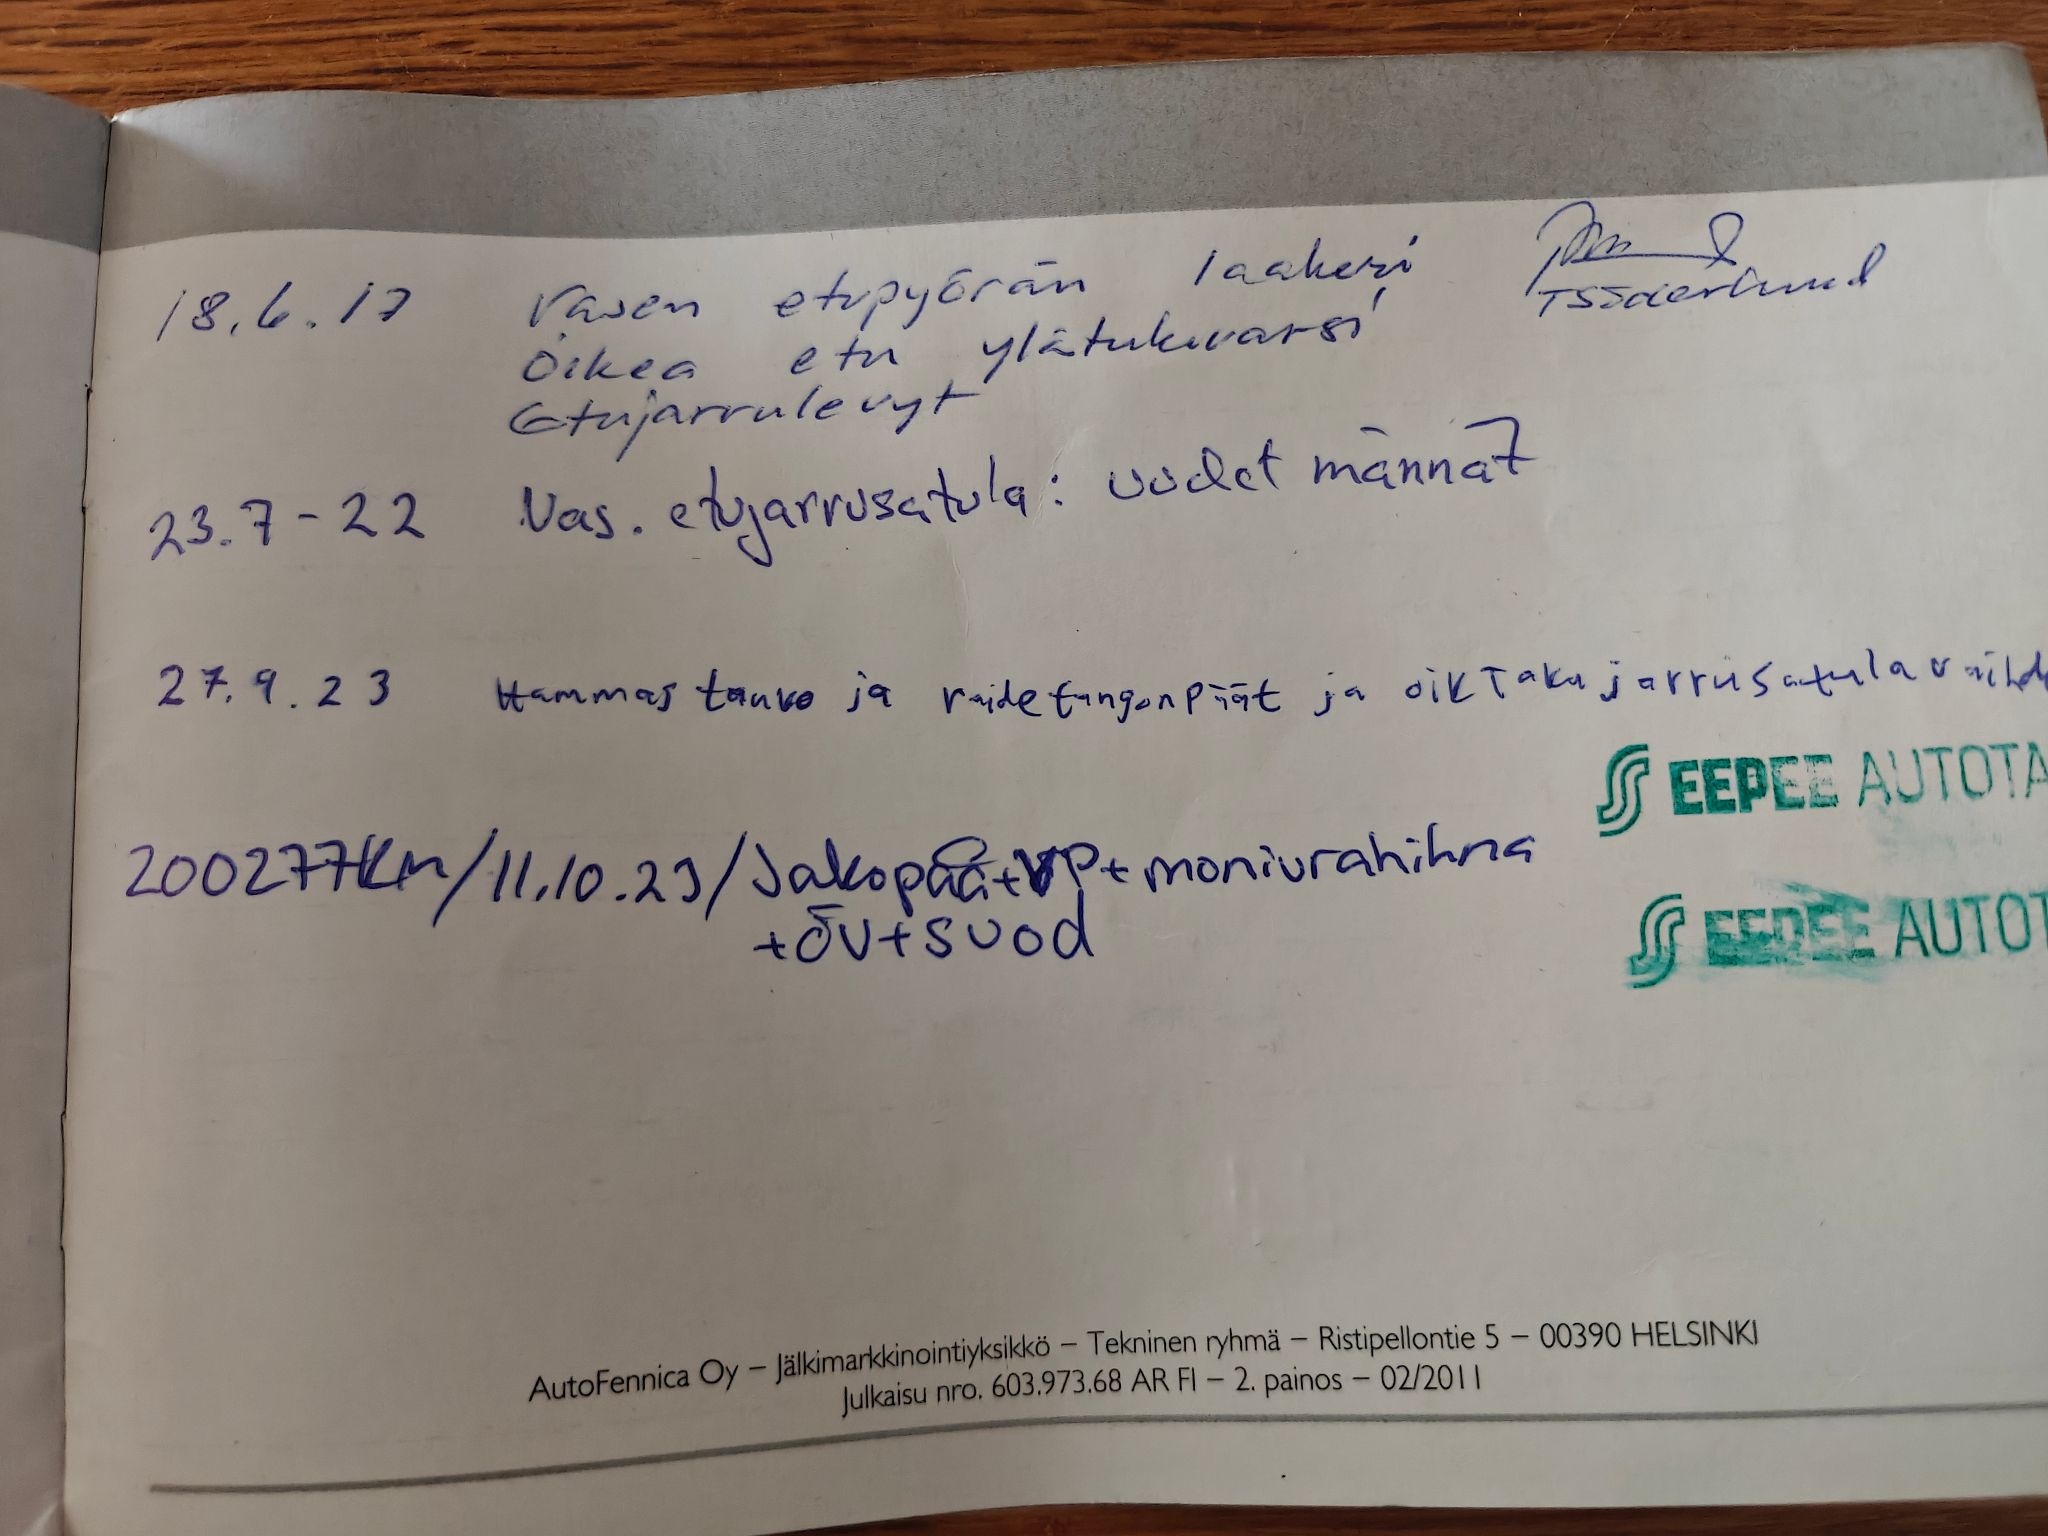 18.6.17 Vasen etupyörän laakeri
TSöderlund
Oikea etu ylätukivarsi
Etujarrulevyt
23.7-22 Vas. etujarrusatula: uudet männät
27.9.23 Hammastanko ja raidetangonpäät ja oik takajarrusatula vaihde
EEPEE AUTOTA
200277km/11.10.23/Jakopää+VP+moniurahihna
+ÖV+suod
EEPEE AUTOT
AutoFennica Oy – Jälkimarkkinointiyksikkö – Tekninen ryhmä – Ristipellontie 5 – 00390 HELSINKI
Julkaisu nro. 603.973.68 AR FI – 2. painos – 02/2011